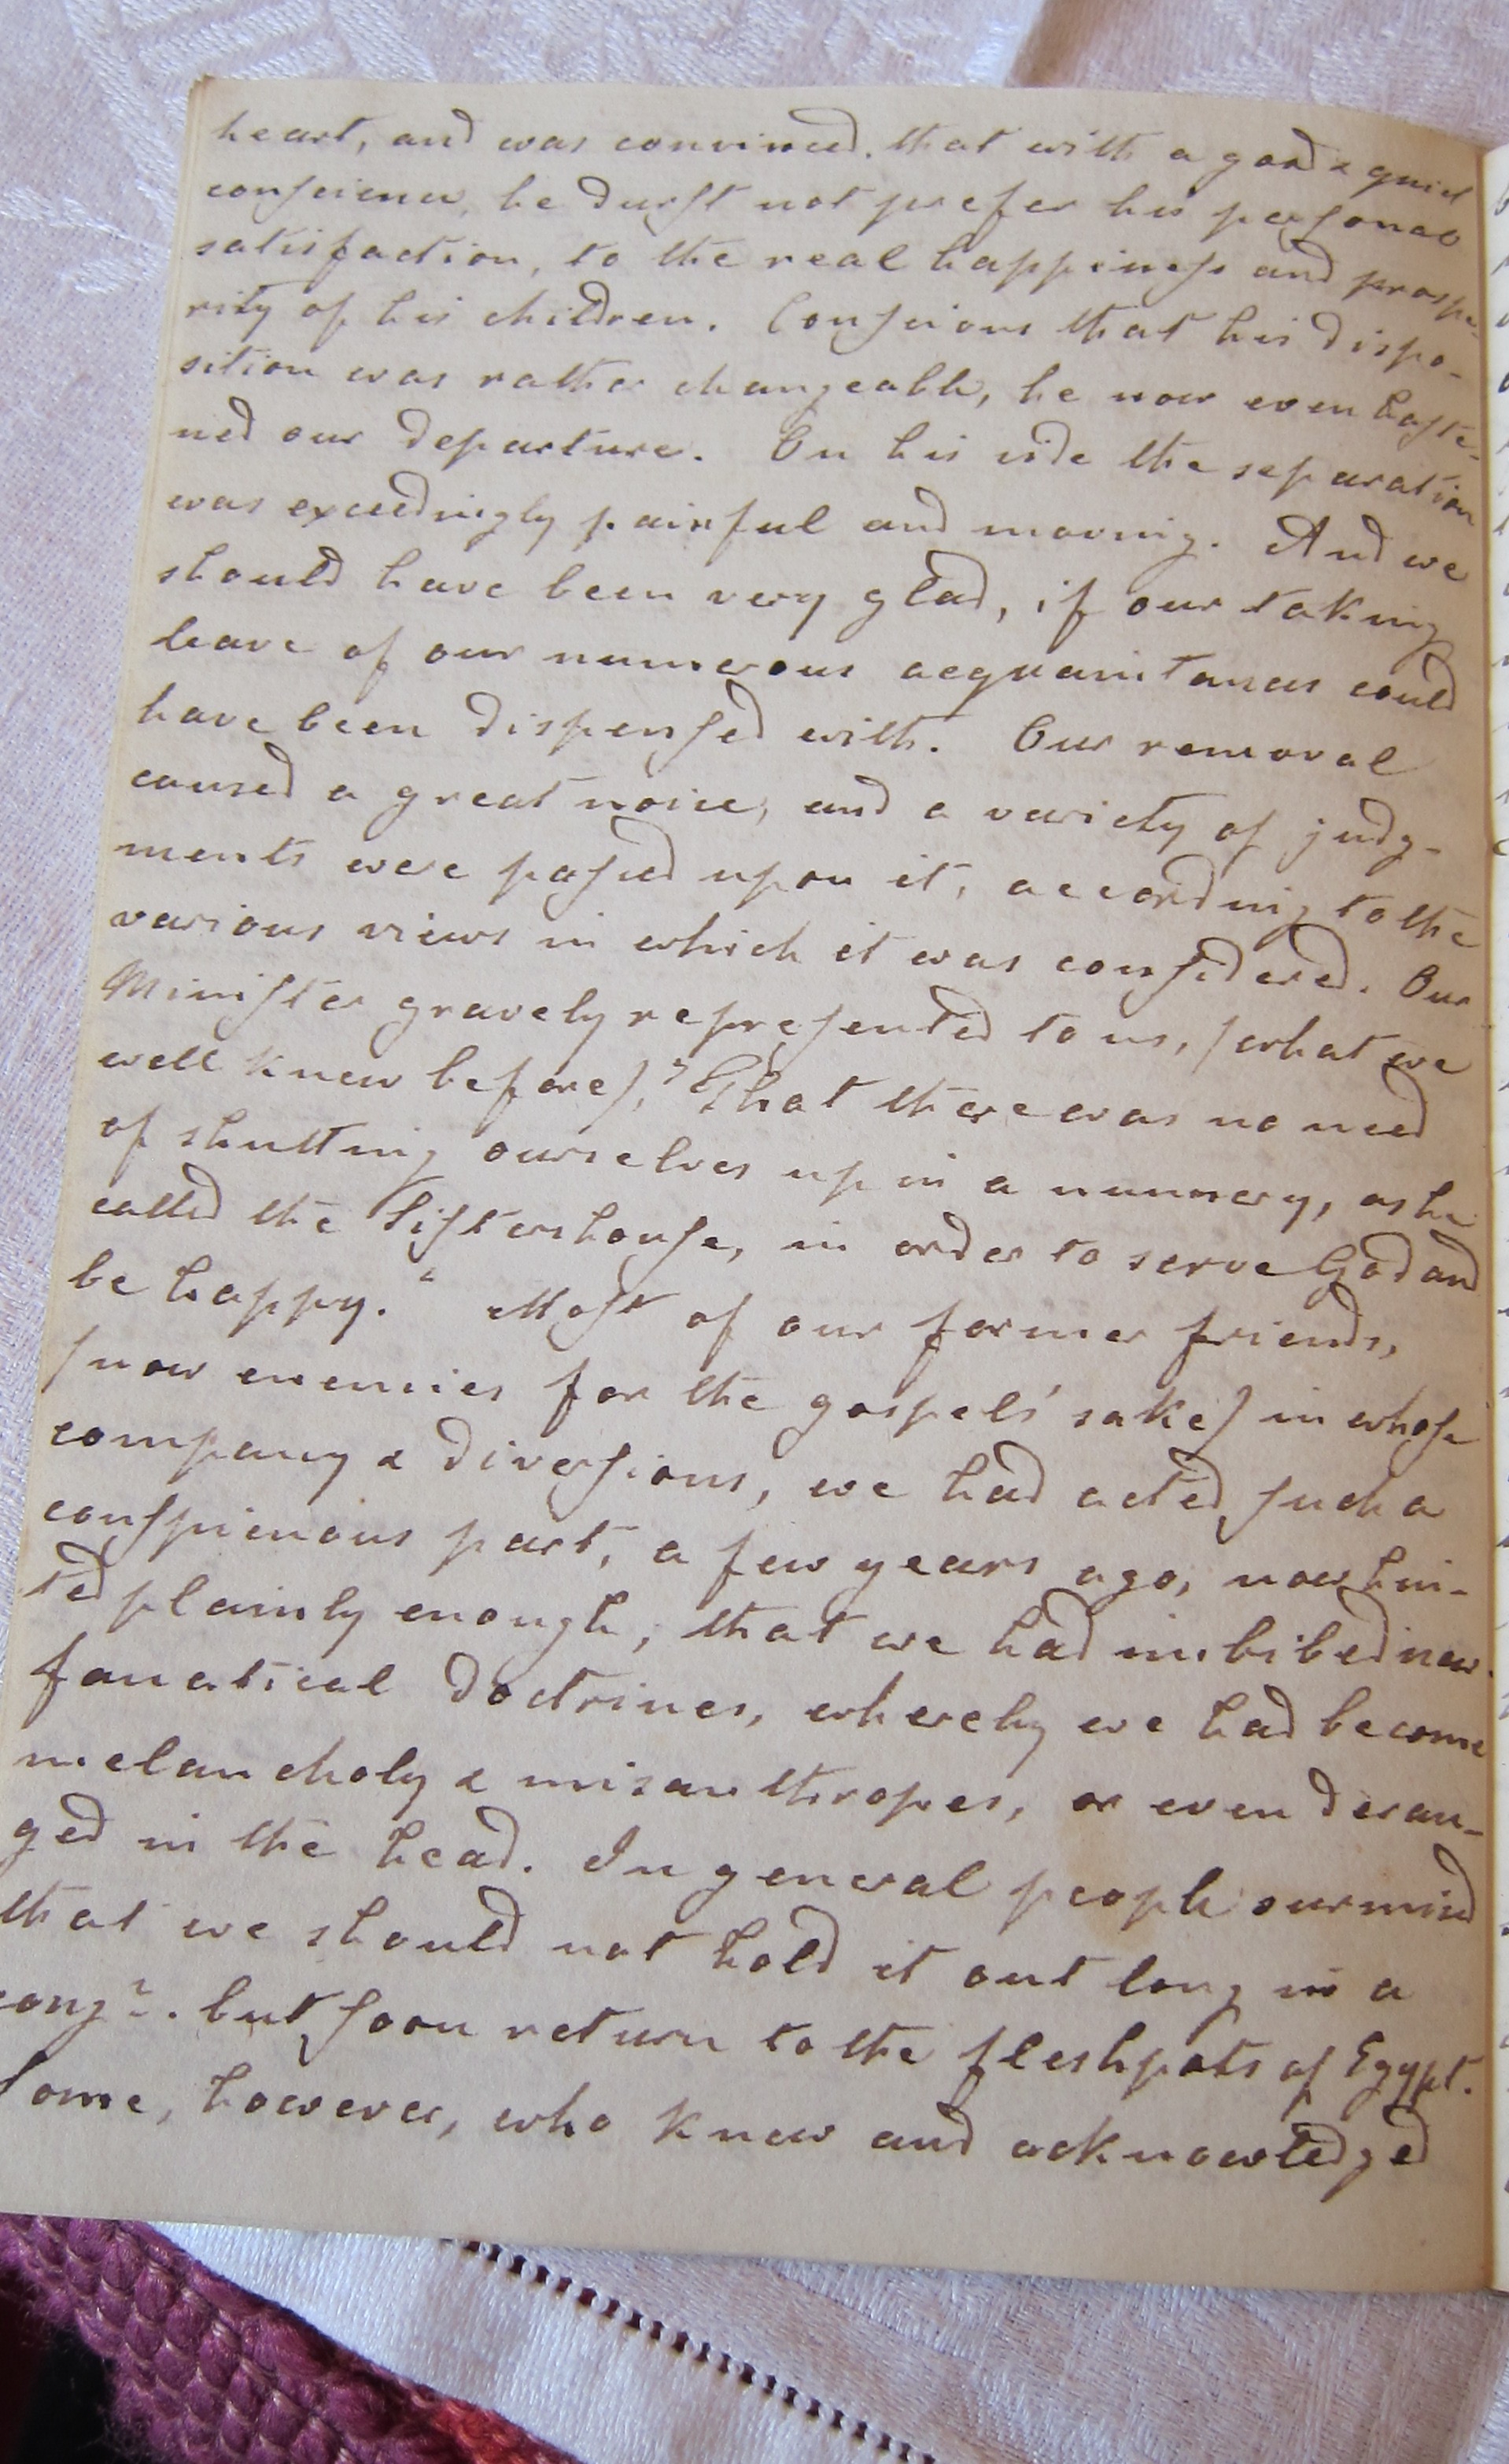 heart, and was convinced. that with a good & quiet
conscience, he durst not prefer his personal
satisfaction, to the real happiness and prospe-
rity of his children. Conscious that his dispo-
sition was rather changeable, he now even haste-
ned our departure. On his side the separation
was exceedingly painful and moving. And we
should have been very glad, if our taking
leave of our numerous acquaintances could
have been dispensed with. Our removal
caused a great noise, and a variety of judg-
ments were passed upon it, according to the
various views in which it was considered. Our
Minister gravely represented to us, /what we
well knew before/, "That there was no need
of shutting ourselves up in a nunnery, as he
called the Sistershouse, in order to serve God and
be happy." Most of our former friends,
/now enemies for the gospels' sake/ in whose
company & diversions, we had acted such a
conspicuous part, a few years ago, now hin-
ted plainly enough, that we had imbibed new
fanatical doctrines, whereby we had become
melancholy & misanthropes, or even deran-
ged in the head. In general people surmised
that we should not hold it out long in a
congn. but soon return to the fleshpots of Egypt.
Some, however, who knew and acknowledged